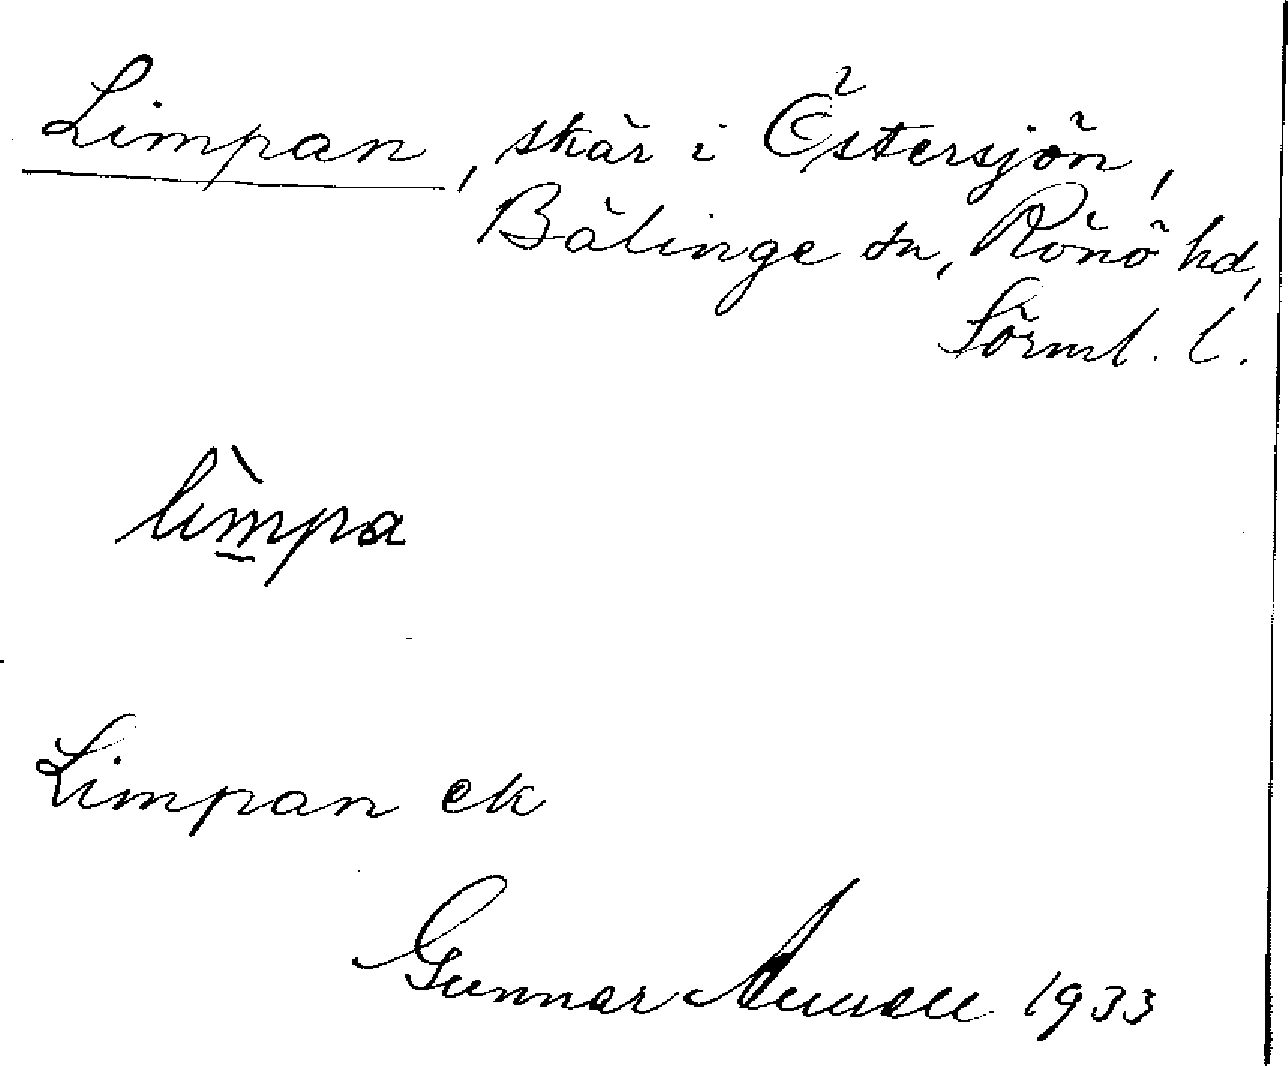 Limpan, skär i Östersjön,
Bälinge sn, Rönö hd,
Sörml. l.
lìmpa
Limpan ek
Gunnar 1933